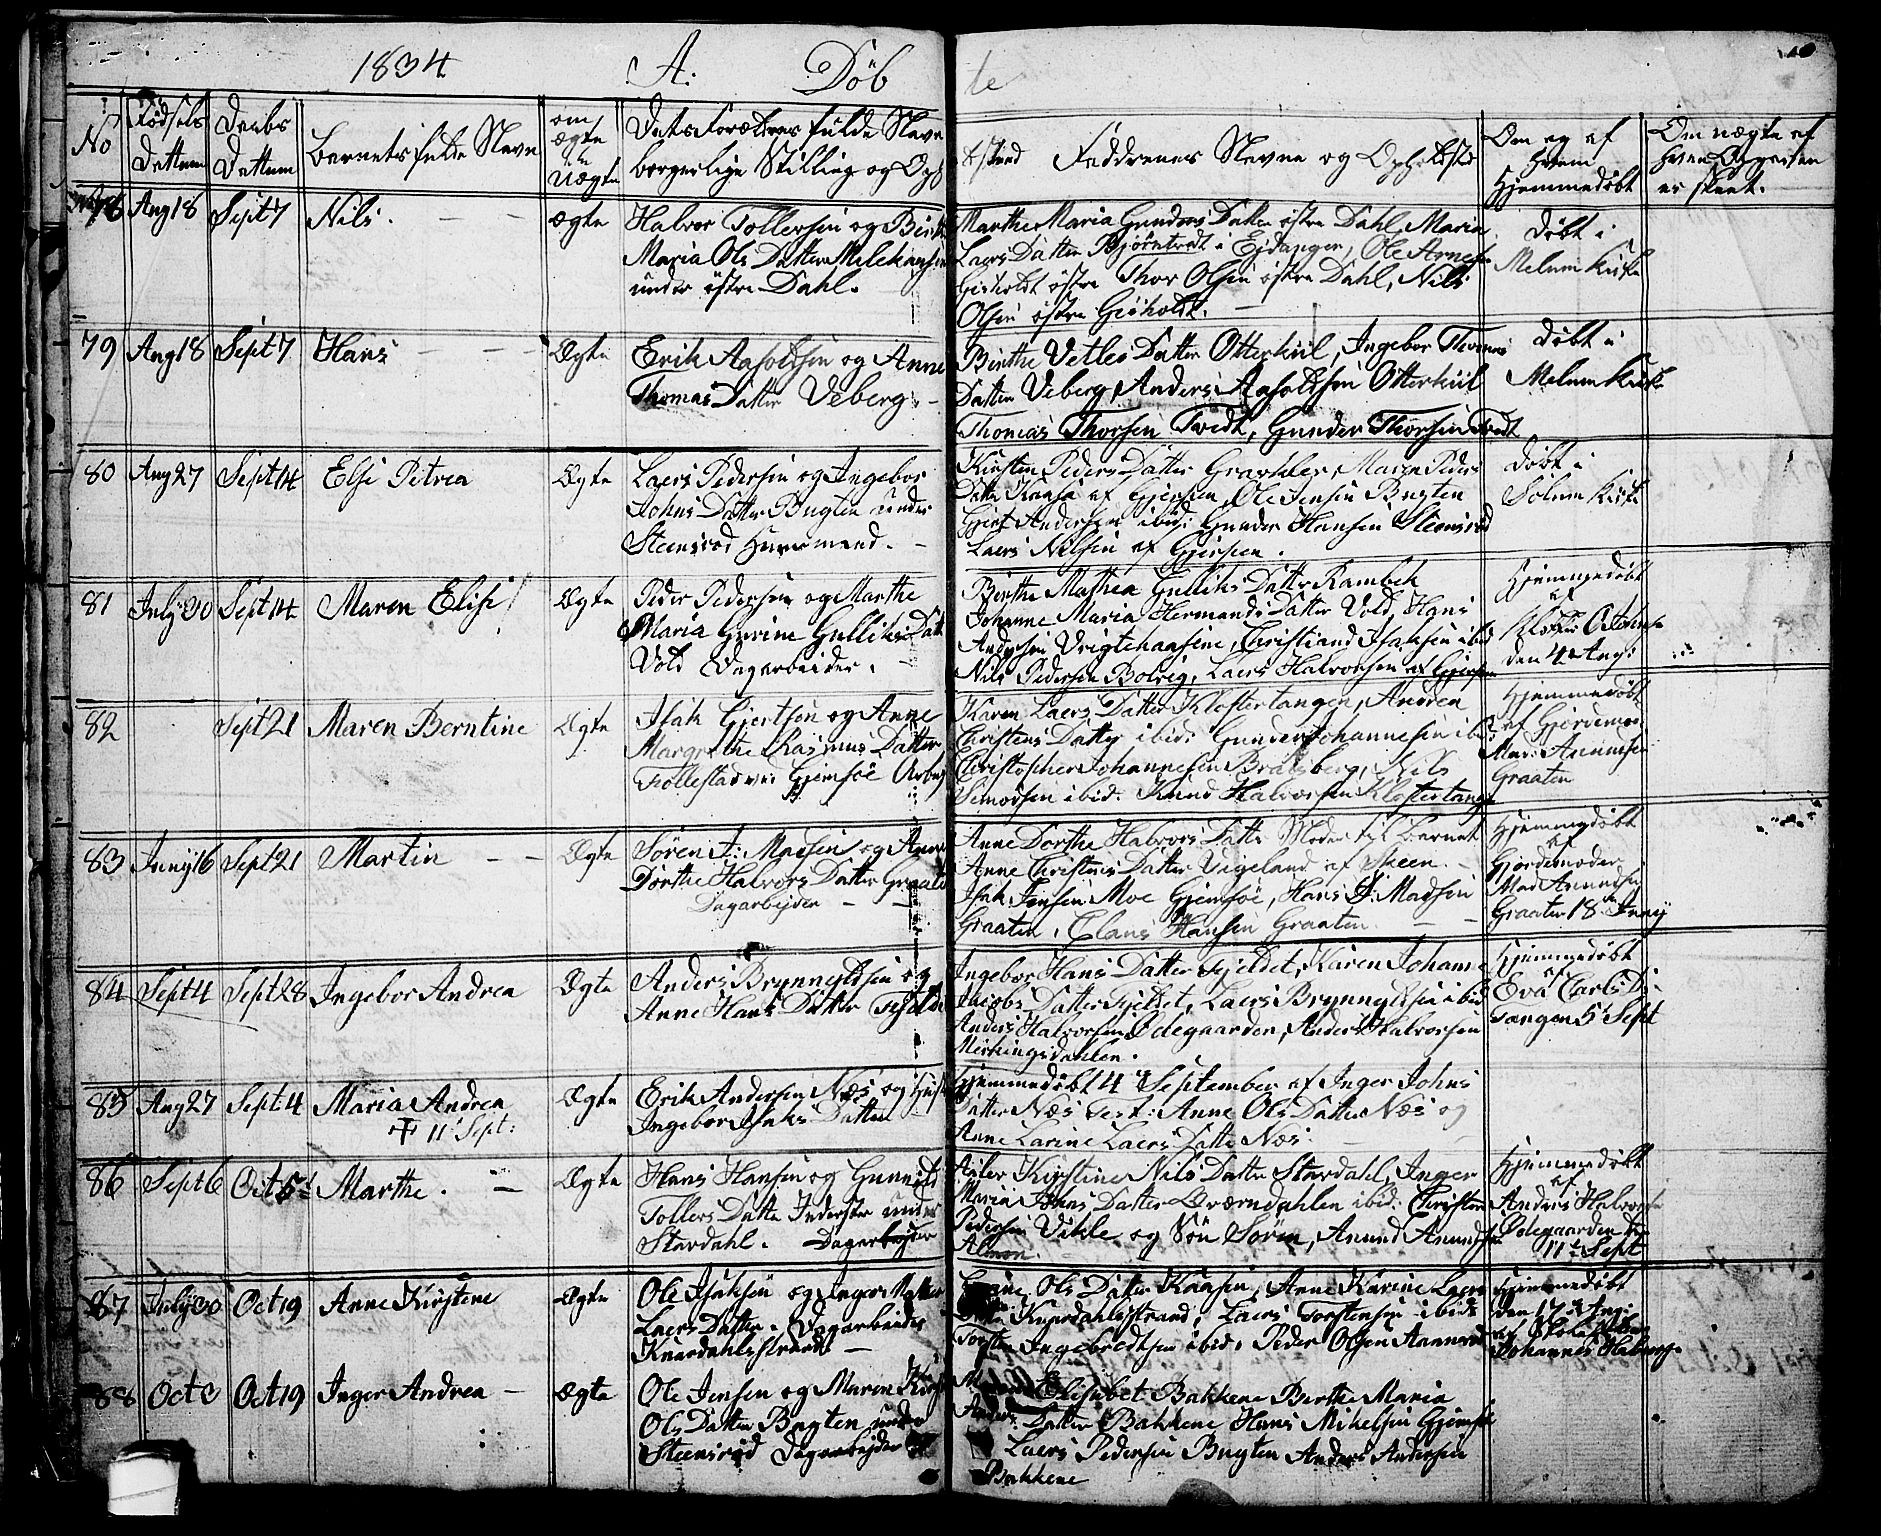 1834 A: Döb te
No
Födsels Dattum
Daabs Dattum
Barnets fulde Navn
om ægte u ægte
Dets Forældres fulde Navn
borgerlige Stilling og Op
Faddrenes Navne og Opholdsted
Om og af hvem Hjemmedöbt
78 Aug 18 Sept 7 Nils. ægte
Halvor Tollefsen og Birthe
Maria Ols Datter
under östre Dahl.
Marthe Maria Gunders Datter östre Dahl, Maria
Laers Datter Björntvedt i Ejdanger, Ole Arnesen
Gisholdt östre Thor Olsen östre Dahl, Nils
Olsen östre Gisholdt.
Döbt i
Melum Kirke
79 Aug 18 Sept 7 Hans Ægte
Erik Aasoldsen og Anne
Thomas Datter Veberg
Birthe Vetles Datter Otterkiil, Ingebor Thomas
Datter Veberg, Anders Aasoldsen Otterkiil
Thomas Thorsen Tvedt, Gunder Thorsen Tvedt
Döbt i
Melum Kirke
80 Aug 27 Sept 14 Else Petrea Ægte
Laers Pedersen og Ingebor
Johns Datter Bugten under
Steensröd Huusmand.
Kirsten Peders Datter Graakler, Maren Peders
Datter Kaasa af Gjerpen, Ole Jensen Bugten
Gjert Andersen ibid: Gunder Hansen Steensröd
Laers Nilsen af Gjerpen.
Döbt i
Solum Kirke
81 July 30 Sept 14 Maren Elise Ægte
Peder Pedersen og Marthe
Maria Gurine Gulliks Datt
Vold Dagarbeider.
Birthe Mathea Gulliks Datter Rambek
Johanne Maria Hermands Datter Vold, Hans
Andersen, Christiand Isaksen ibid
Nils Pedersen Bolvig, Laers Halvorsen af Gjerpen
Hjemmedöbt
af
den 4 Aug:
82 Sept 21 Maren Berntine Ægte
Isak Gjertsen og Anne
Margrethe Rasmus Datter
Gjemsöe
Karen Laers Datter Klostertangen, Andrea
Christens Datter ibid: Gunder Johannesen ibid:
Christopher Johannesen Bratsberg, Nils
Simonsen ibid: Knud Halvorsen Klostertangen
Hjemmedöbt
af Gjordemo:
Mad: Amundsen
Graaten
83 Juny 16 Sept 21 Martin Ægte
Sören A: Madsen og Anne
Dorthe Halvors Datter Graaten
Dagarbejder
Anne Dorthe Halvors Datter Moder til Barnet
Anne Christens Datter Vegeland af Skeen.
Isak Jensen Moe Gjemsöe, Hans Madsen
Graaten, Claus Hansen Graaten.
Hjemmedöbt
af
Gjordemoder
Mad Amundsen
Graaten 18 Juny
84 Sept 4 Sept 28 Ingebor Andrea Ægte
Anders Brynnyldsen og
Anne Hans Datter Fjeldet
Ingebor Hans Datter Fjeldet, Karen Johanne
Jacobs Datter Fjeldet, Laers Brynnyldsen ibid
Anders Halvorsen Ödegaarden, Anders Halvorsen
Hjemmedöbt
af
Eva Carls D:
Tangen 5 Sept
85 Aug 27 Sept 4 Maria Andrea
✝ 11 Sept:
Ægte
Erik Andersen Næs og Hust
Ingebor Isaks Datter
Hjemmedöbt 4 September af Inger Johns
Datter Næs Test: Anne Ols Datter Næs og
Anne Larine Laers Datter Næs
86 Sept 6 Oct 5 Marthe. Ægte
Hans Hansen og Gunild
Tollefs Datter Inderste under
Stardahl. Dagarbejder
Kirstine Nils Datter Stardahl, Inger
Maria Johns Datter Qværndahlen ibid: Christen
Pedersen og Sön Sören, Amund Amundsen
Hjemmedöbt
af
Anders Halvorsen
Ödegaarden den
11 Sept
87 July 30 Oct 19 Anne Kirstine Ægte
Ole Isaksen og Inger
Laers Datter. Dagarbeider
Knardahlsstrand
Ols Datter Kaasen, Anne Karine Laers
Knardahlsstrand, Laers Torstensen ibid:
Torsten Ingebretsen ibid: Peder Olsen
Hjemmedöbt
den 17 Aug:
af
Johannes
88 Oct Oct 19 Inger Andrea Ægte
Ole Jensen og Maren
Ols Datter Bugten under
Steensröd Dagarbejder
Elisabet Bakkene Berthe Maria
Anders Datter Bakkene Hans Mikelsen Gjemsöe
Laers Pedersen Bugten Anders Andersen
Bakkene